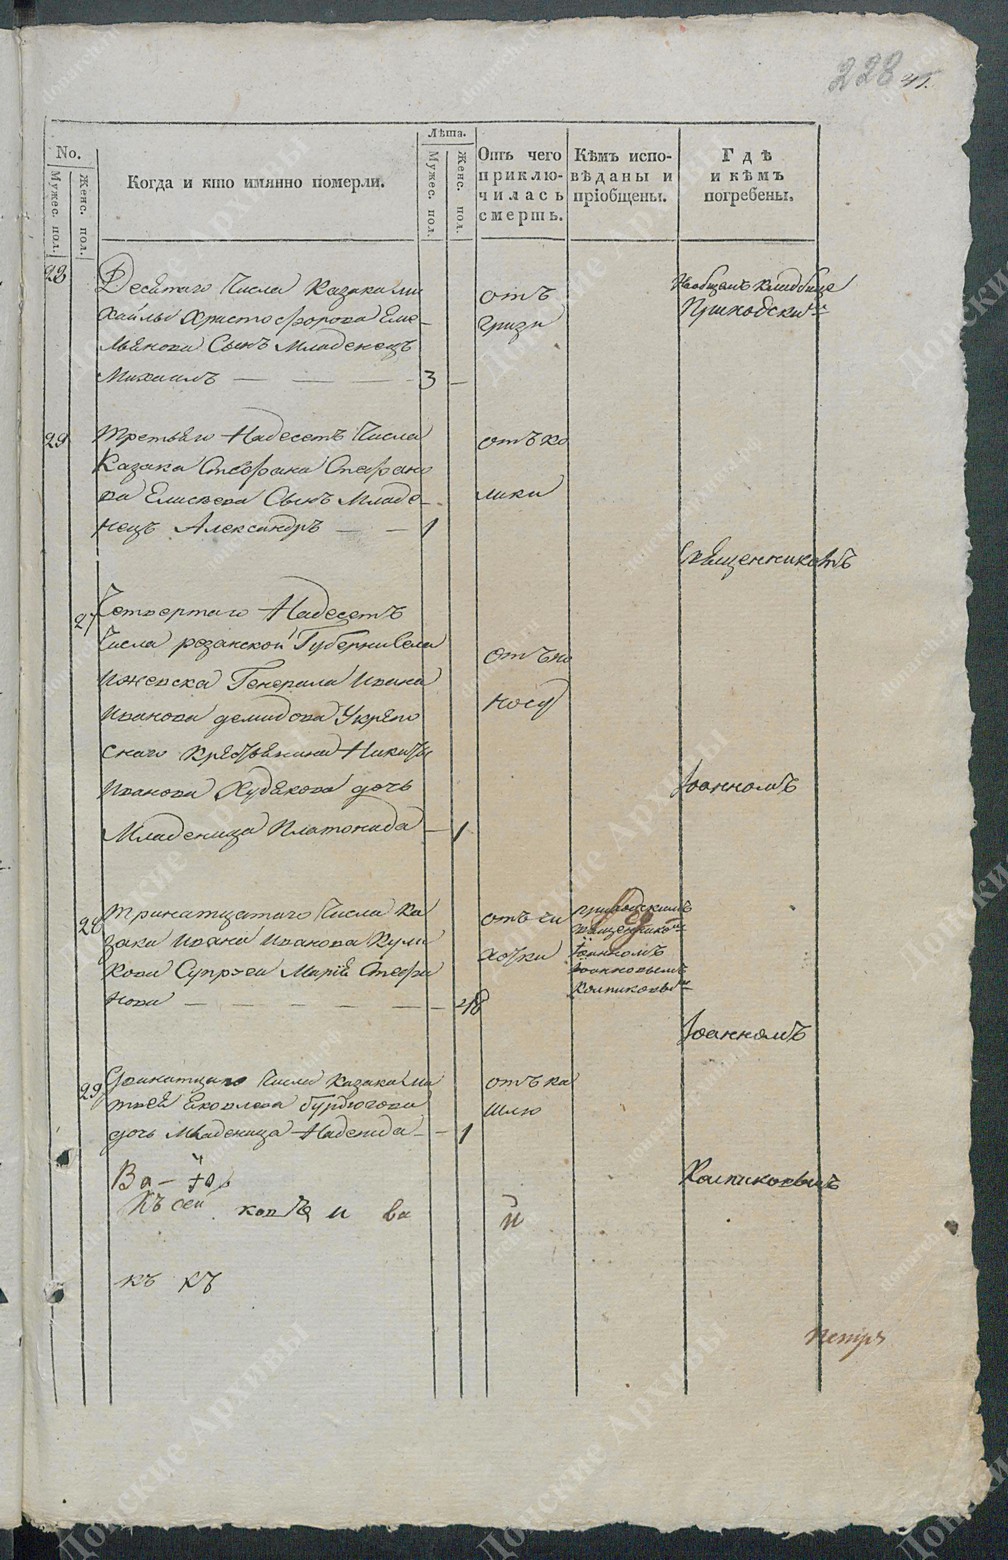 228
No.
Мужес. пол.
Женс. пол.
Когда и кто имянно померли.
Лѣта.
Мужес. пол.
Женс. пол.
Отъ чего
приклю-
чилась
смерть.
Кѣмъ испо-
вѣданы и
пріобщены.
Гдѣ
и кѣмъ
погребены.
Десятаго Числа Казака Ми
хайлы Христофорова Еме-
льянова Сынъ Младенецъ
Михаилъ
3
отъ
грызи
Приходским
29
Третьяго Надесеть Числа
Казака Стефана Стефано
ва Елисѣева Сынъ Младе-
нецъ Александръ
1
отъ ко
лики
Священникомъ
27
Четвертаго Надесеть
Числа резанской Губернии села
Ижевска Генерала Ивана
Иванова демидова Укрепо
снаго Крестьянина Никиты
Иванова Худякова дочь
Младеница Платонида
1
отъ по
носу
Іоанномъ
28
Тринатцатаго Числа Ка
зака Ивана Иванова Кули
кова Супруга Марія Стефа
нова
48
отъ чи
хотки
Приходскимъ
священником
Іоанномъ
Іоанновымъ
Колпиковым
Іоанномъ
29
Числа Казака Ма
твея Яковлева Бурдюгова
дочь Младеница Надежда
1
отъ ка
шлю
Колпиковымъ
Къ сей
и ва
й
къ къ
Петръ
Донские Архивы
donarch.ru